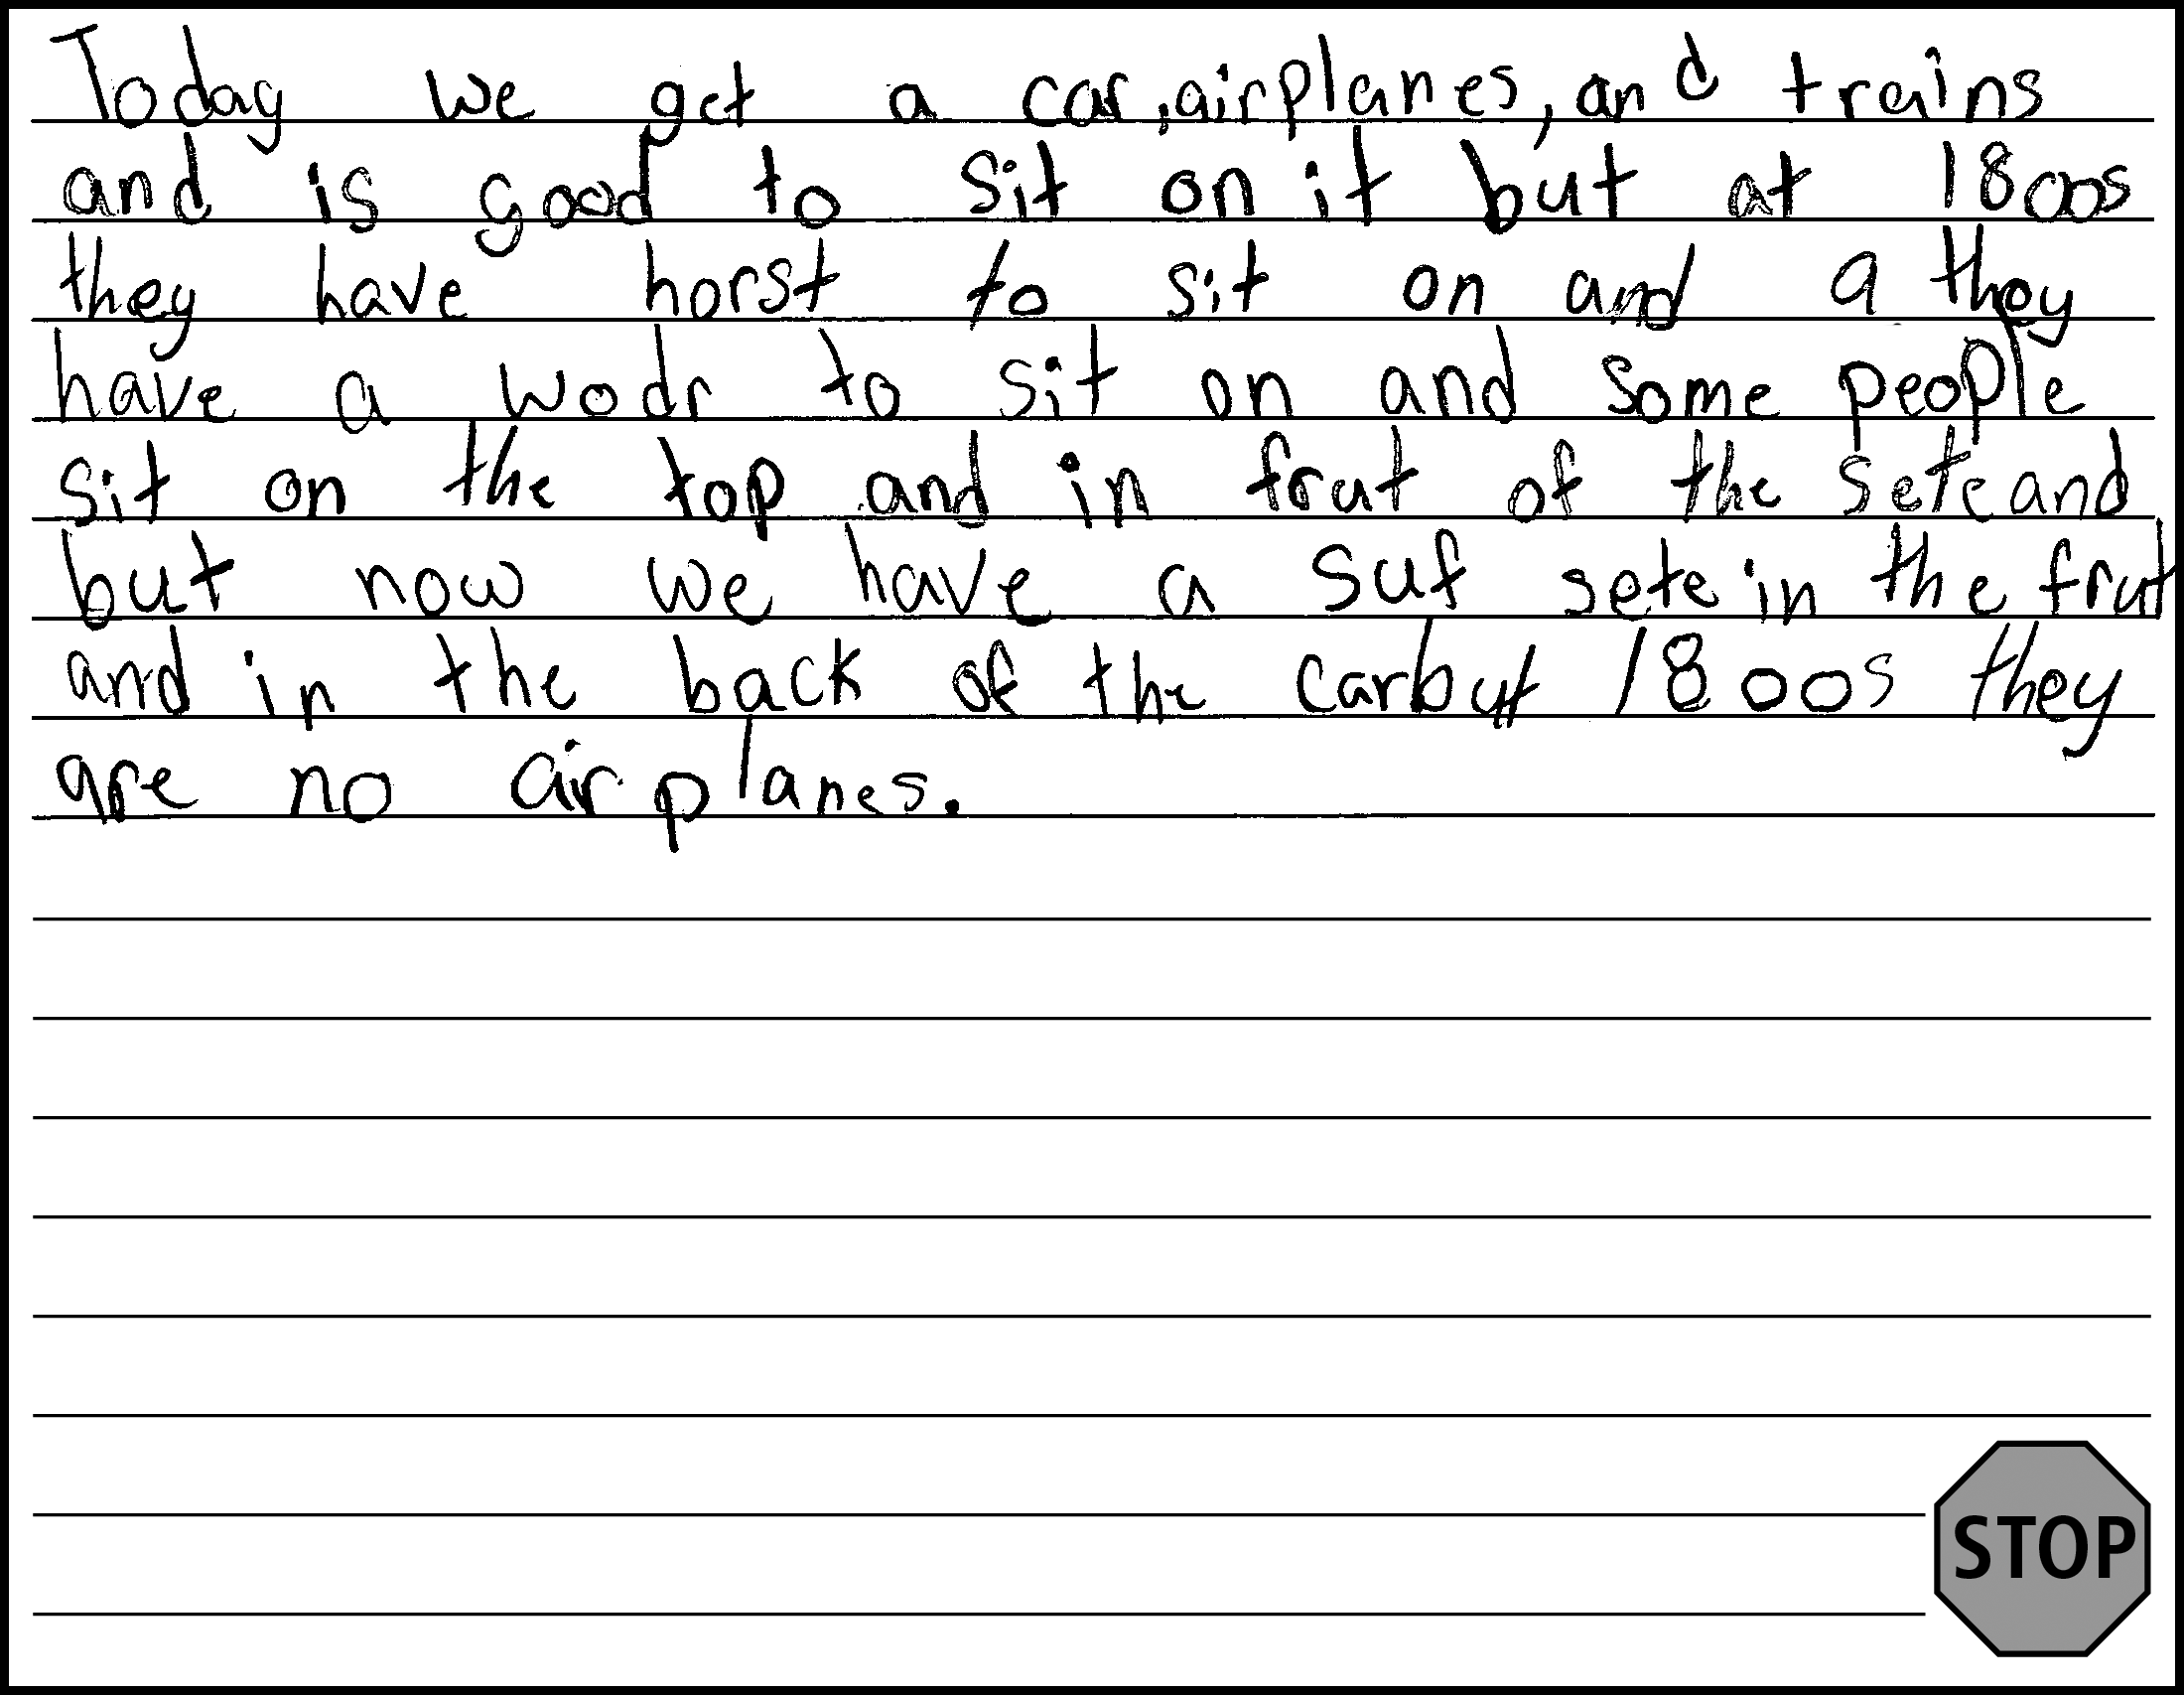 Today we get a car, airplanes, and trains
and is good to sit on it but at 1800s
they have horst to sit on and a they
have a wodr to sit on and some people
sit on the top and in frut of the sete and
but now we have a suf sete in the frut
and in the back of the car but 1800s they
are no airplanes.
STOP